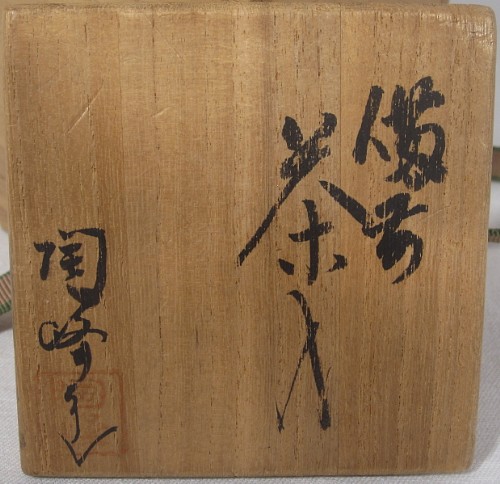 備前
茶入
陶峰造